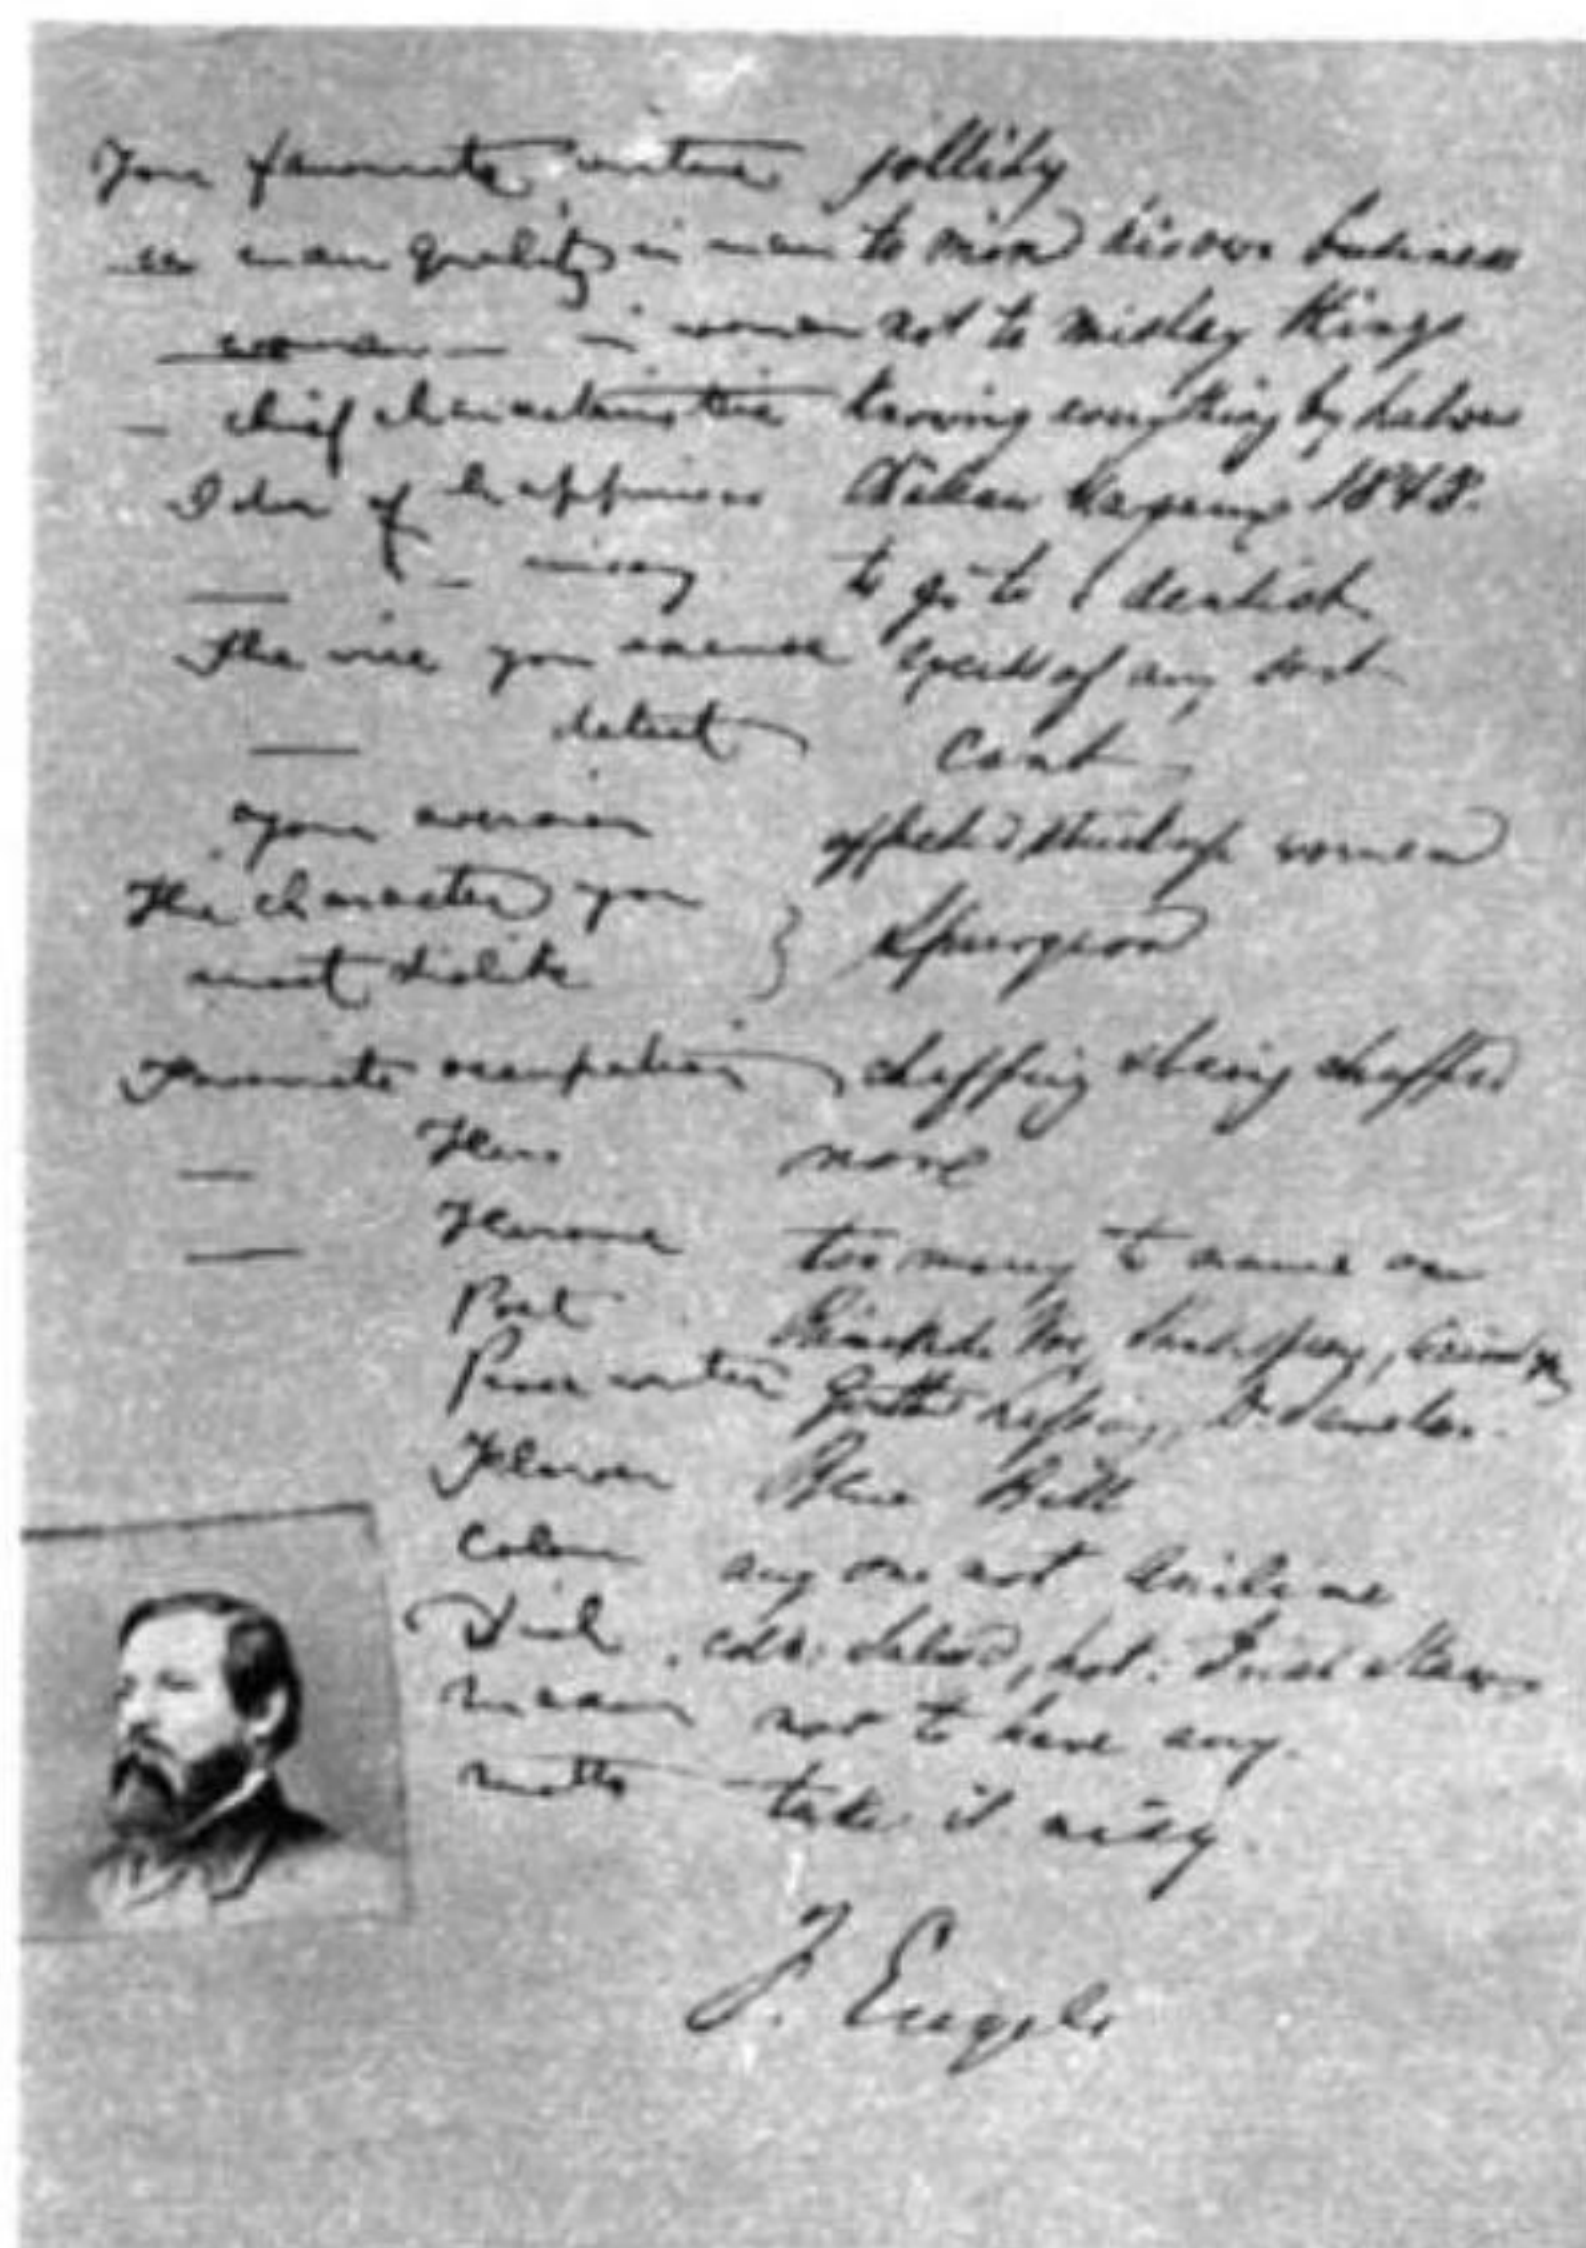 Your favourite virtue jollity
in man quality in man to mind his own business
woman — in woman not to mislay things
— chief characteristic knowing everything by halves
Idea of happiness Château Margaux 1848.
— — misery to go to a dentist
The vice you excuse excess of any sort
— detest Cant
Your aversion affected stuckup women
The character you most dislike } Spurgeon
Favourite occupation chaffing & being chaffed
— Hero none
— Heroine too many to name one
Poet Reineke de Vos, Shakespeare, Ariosto
Prose writer Goethe Lessing, Dr Samelson.
Flower Blue Bell
Colour any one not Aniline
Dish cold: Salad, hot: Irish Stew
Maxim not to have any.
Motto take it aisy
F. Engels